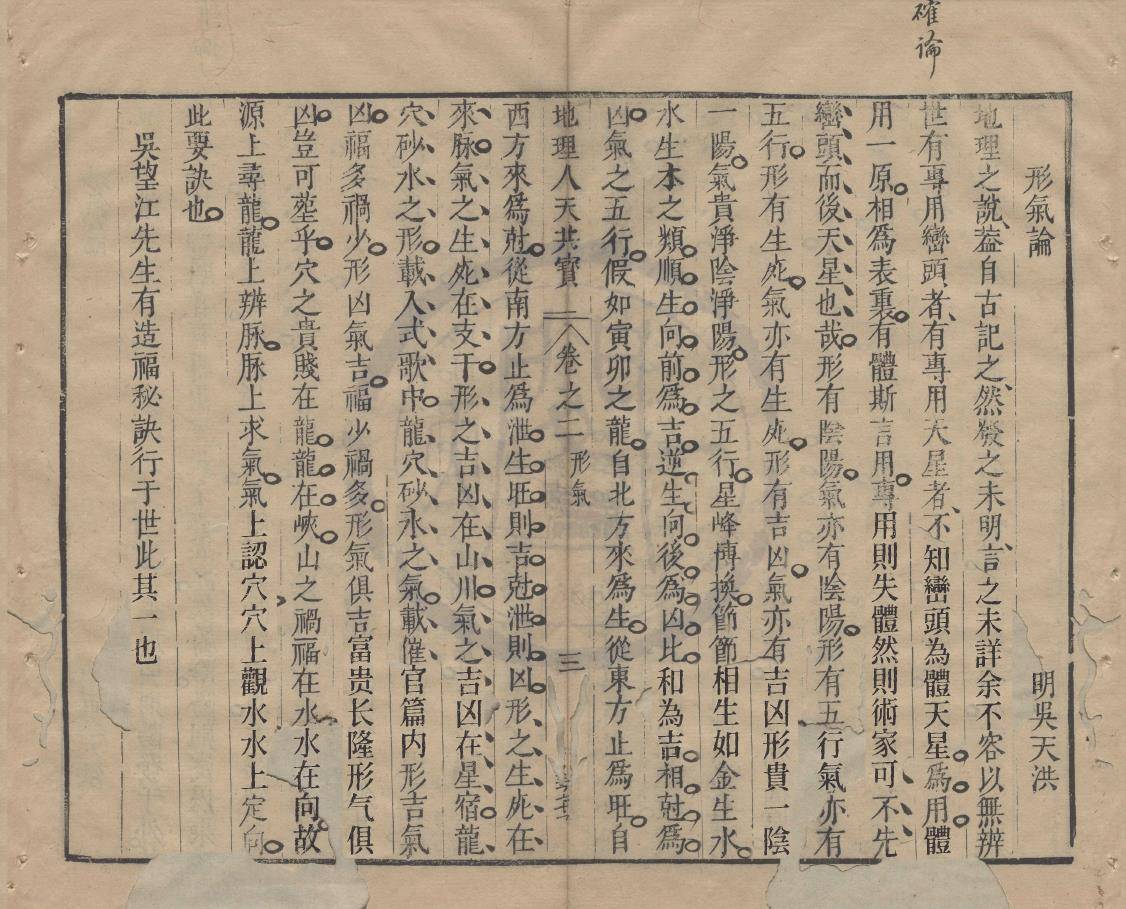 確論
形氣論　明吳天洪
地理之說葢自古記之然發之未明言之未詳余不容以無辨
世有專用巒頭者有專用天星者不知巒頭為體天星爲用體
用一原相爲表裏有體斯言用專用則失體然則術家可不先
巒頭而後天星也哉形有陰陽氣亦有陰陽形有五行氣亦有
五行形有生死氣亦有生死形有吉凶氣亦有吉凶形貴一陰
一陽氣貴淨陰淨陽形之五行星峰博換節節相生如金生水
水生木之類順生向前爲吉逆生向後爲凶比和為吉相尅爲
凶氣之五行假如寅卯之龍自北方來爲生從東方止爲旺自
地理人天共寳　卷之二　形氣　三
西方來爲尅從南方止爲泄生旺則吉尅泄則凶形之生死在
來脉氣之生死在支干形之吉凶在山川氣之吉凶在星宿龍
穴砂水之形載入式歌中龍穴砂水之氣載催官篇内形吉氣
凶福多禍少形凶氣吉福少禍多形氣俱吉富贵长隆形气俱
凶豈可塟乎穴之貴賤在龍龍在峽山之禍福在水水在向故
源上尋龍龍上辨脉脉上求氣氣上認穴穴上觀水水上定向
此要訣也
吳望江先生有造福秘訣行于世此其一也